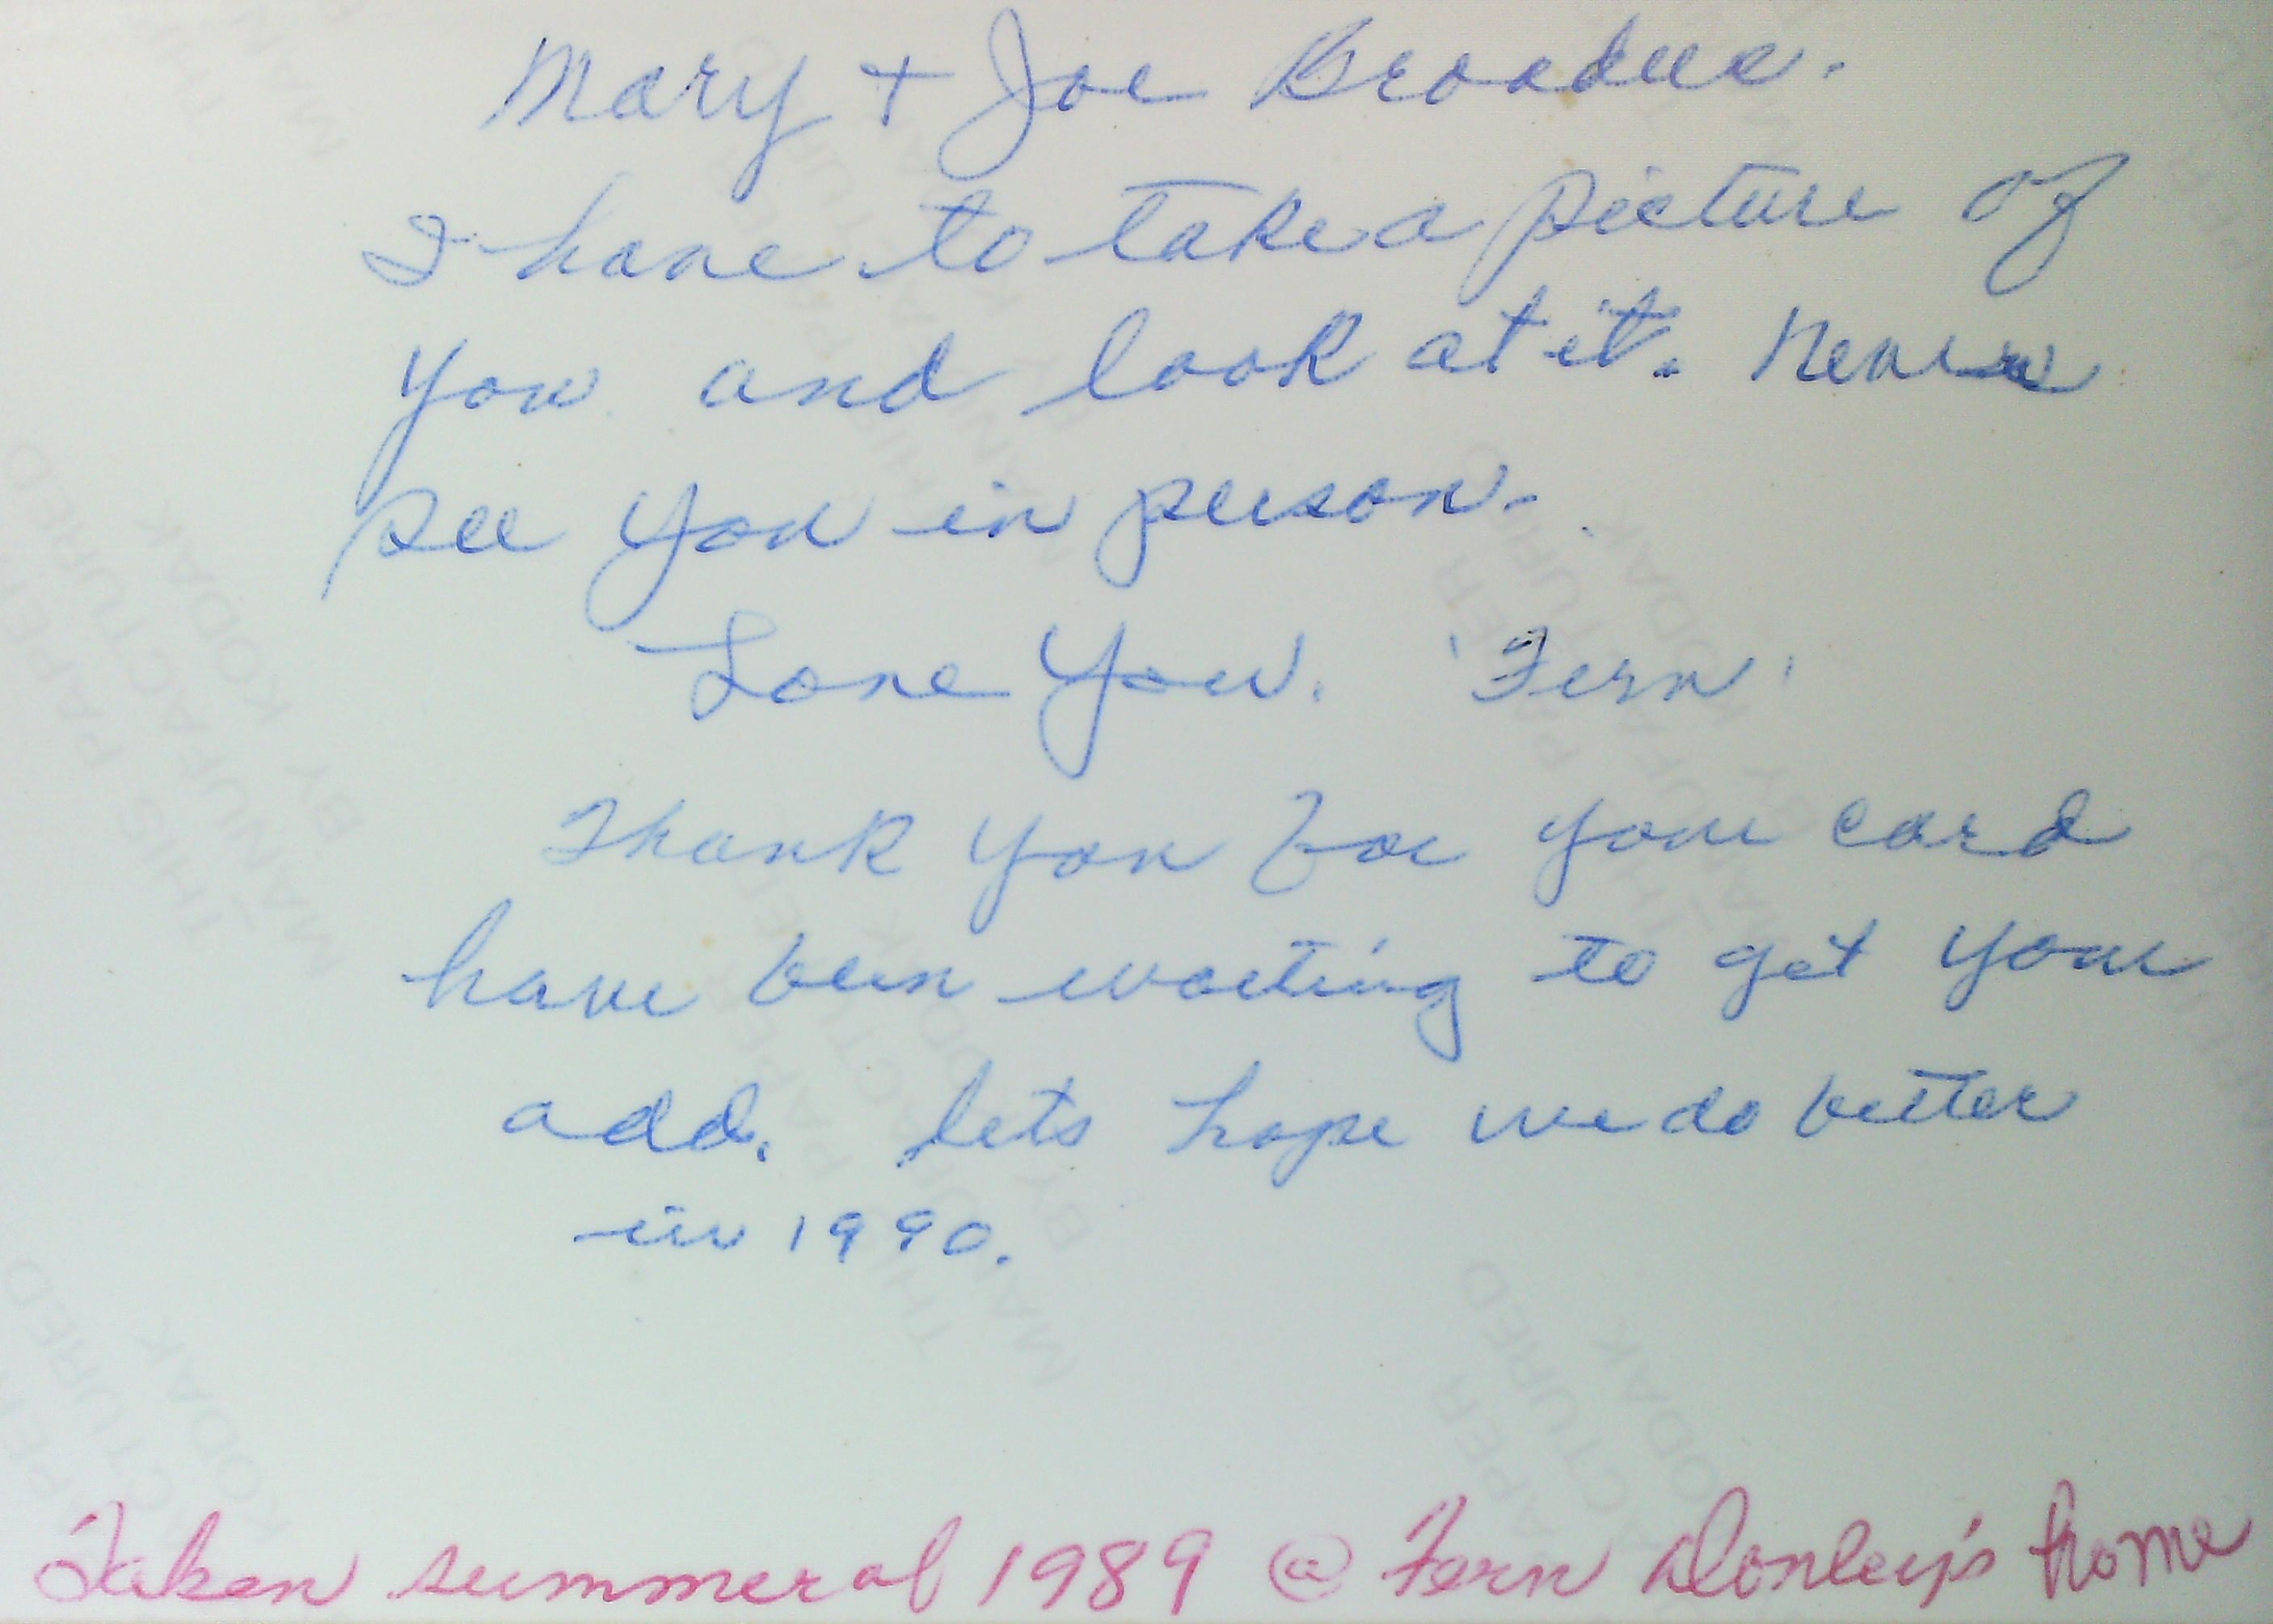 Mary + Joe Broadus.
I have to take a picture of
you and look at it. Never
see you in person.
Love You. 'Fern'
Thank you for your card
have been waiting to get your
add. lets hope we do better
in 1990.
Taken summer of 1989 @ Fern Donley's home
THIS PAPER
MANUFACTURED
BY KODAK